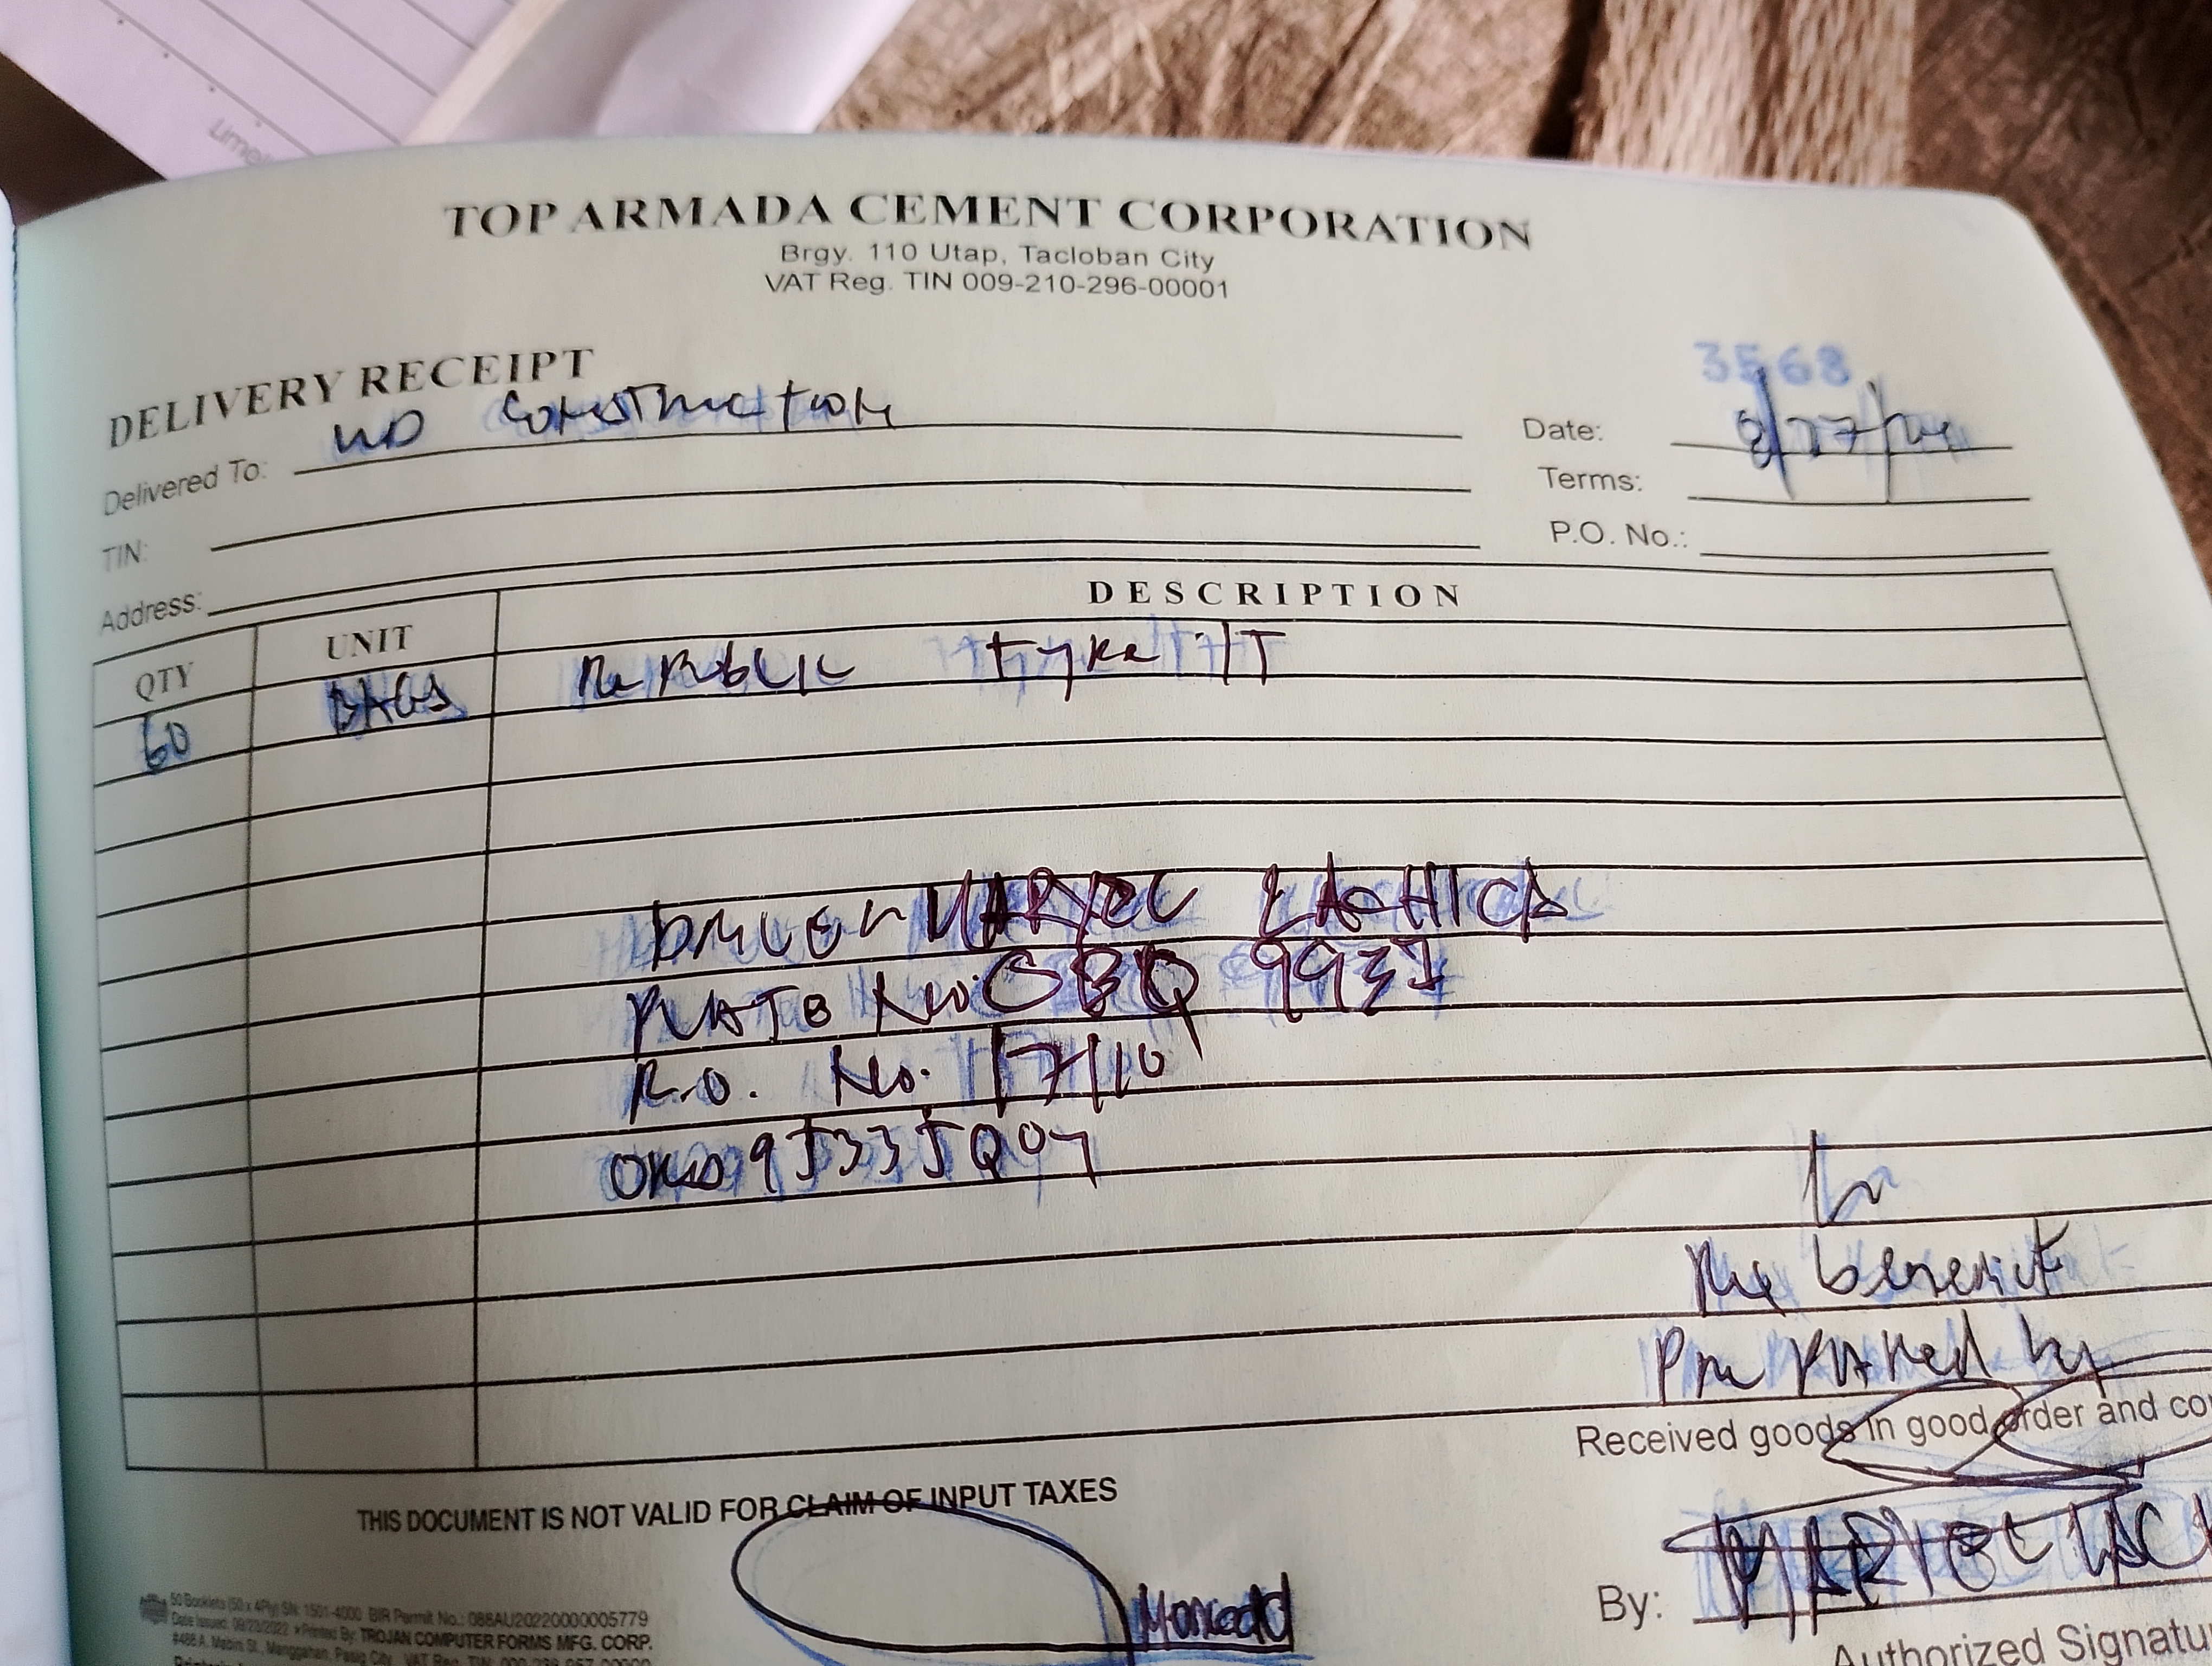 Lime
TOP ARMADA CEMENT CORPORATION
Brgy. 110 Utap, Tacloban City
VAT Reg. TIN 009-210-296-00001
DELIVERY RECEIPT
3568
Delivered To: Construction
Date: 8/27/
TIN:
Terms:
Address:
P.O. No.:
QTY UNIT DESCRIPTION
60 BAGS Republic type 1T
DRIVER MARYEL LACHICA
PLATE No. CBQ 9931
R.O. No. 17110
95335Q07
Mr benerick
Prepared by
Received goods in good order and co
THIS DOCUMENT IS NOT VALID FOR CLAIM OF INPUT TAXES
By: MARYEL LAC
Authorized Signatu
50 Booklets (50 x 4Ply) SN: 1501-4000 BIR Permit No.: 088AU20220000005779
Date Issued: 09/23/2022 Printed By: TROJAN COMPUTER FORMS MFG. CORP.
#488 A. Mabini St., Manggahan, Pasig City VAT Reg. TIN: